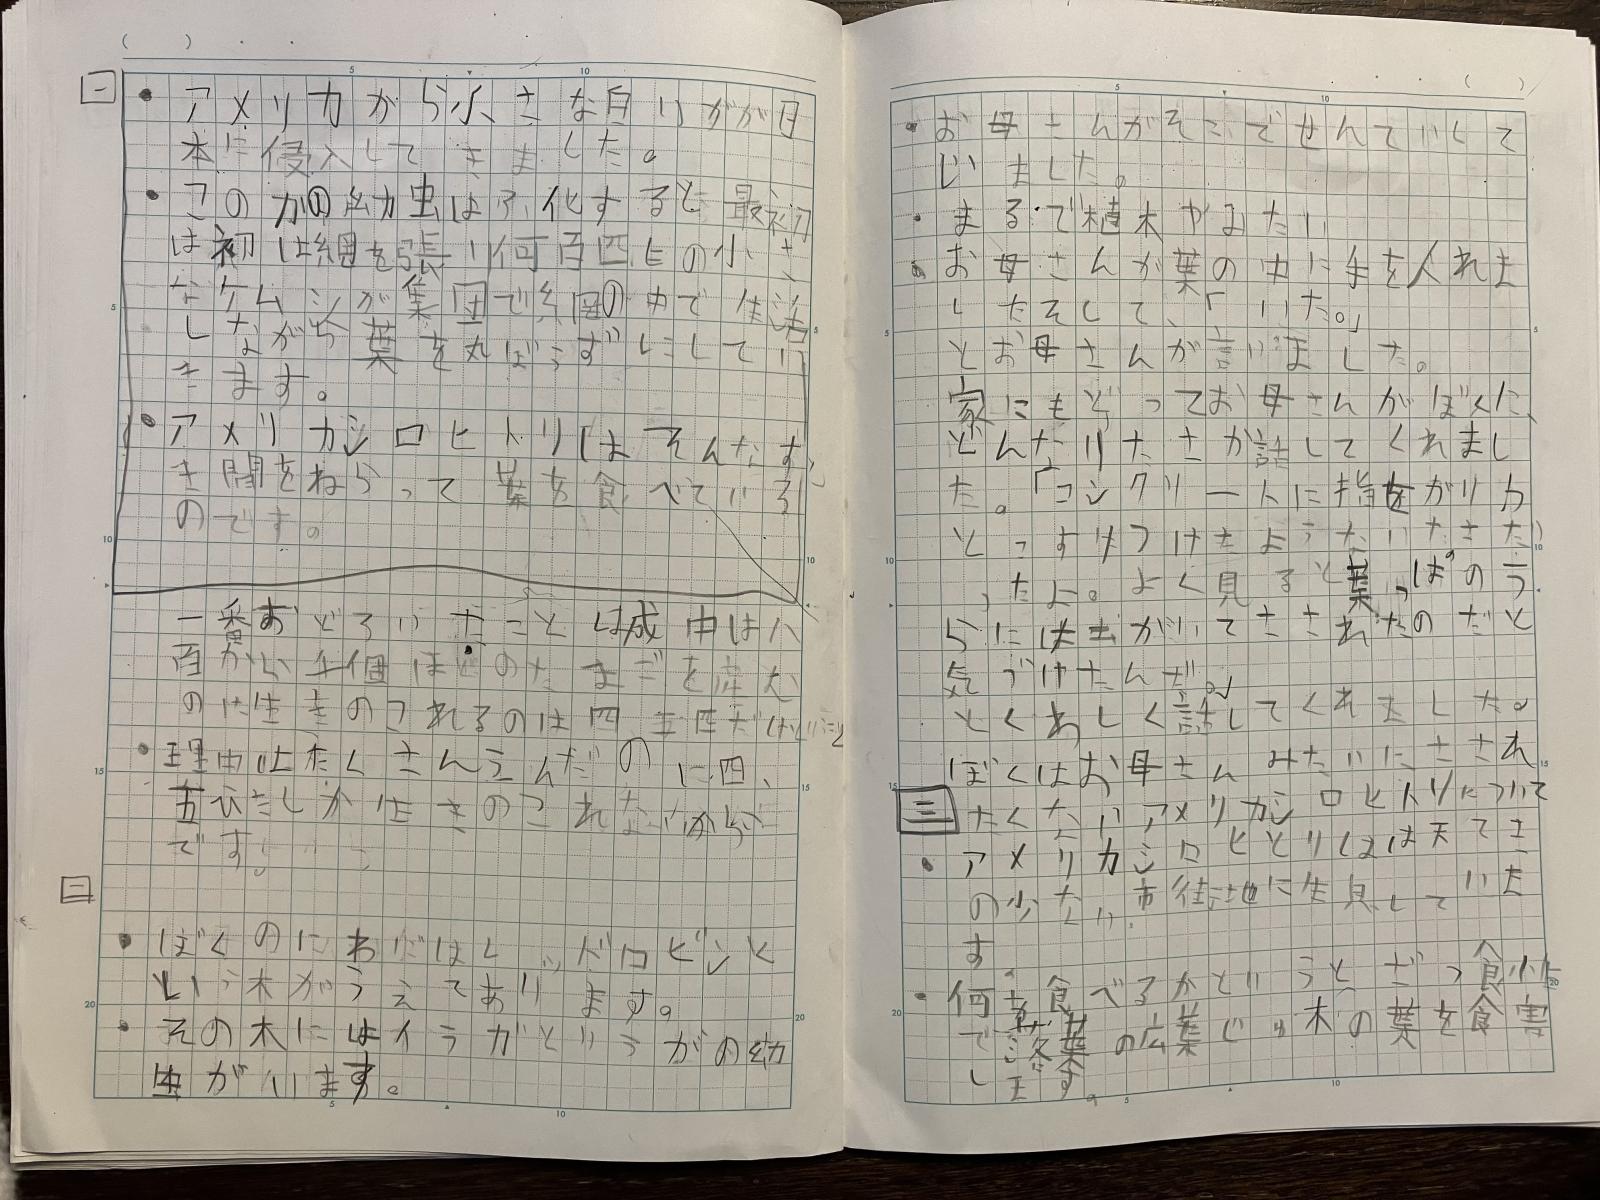 一
・アメリカから小さな白いがが日
本に侵入してきました。
・このがの幼虫はふ化すると最初
は初は網を張り何百匹もの小さ
なケムシが集団で網の中で生活
しながら葉を丸ぼうずにしてい
きます。
・アメリカシロヒトリはそんなす
き間をねらって葉を食べている
のです。
一番おどろいたことは成虫は八
百から千個ほどのたまごを産む
のに生きのこれるのは四、五匹だけ
・理由はたくさんうんだのに四、
五ひきしか生きのこれないから
です。
二
・ぼくのにわにはレッドロビンと
いう木がうえてあります。
・その木にはイラガというがの幼
虫がいます。
・お母さんがそこでせんていして
いました。
・まるで植木やみたい
・お母さんが葉の中に手を入れま
したそして、「いた。」
とお母さんが言いました。
家にもどってお母さんがぼくに、
どんないたさか話してくれまし
た。「コンクリートに指をがりが
りっすりつけたよういたさだ
ったよ。よく見ると葉っぱのう
らには虫がいてさされたのだと
気づけたんだ。」
とくわしく話してくれました。
ぼくはお母さんみたいにさされ
たくない アメリカシロヒトリについて
三
・アメリカシロヒとりは天てき
の少ない市街地に生息していま
す。
・何を食べるかというとざっ食性
で落葉の広葉じゅ木の葉を食害
します。